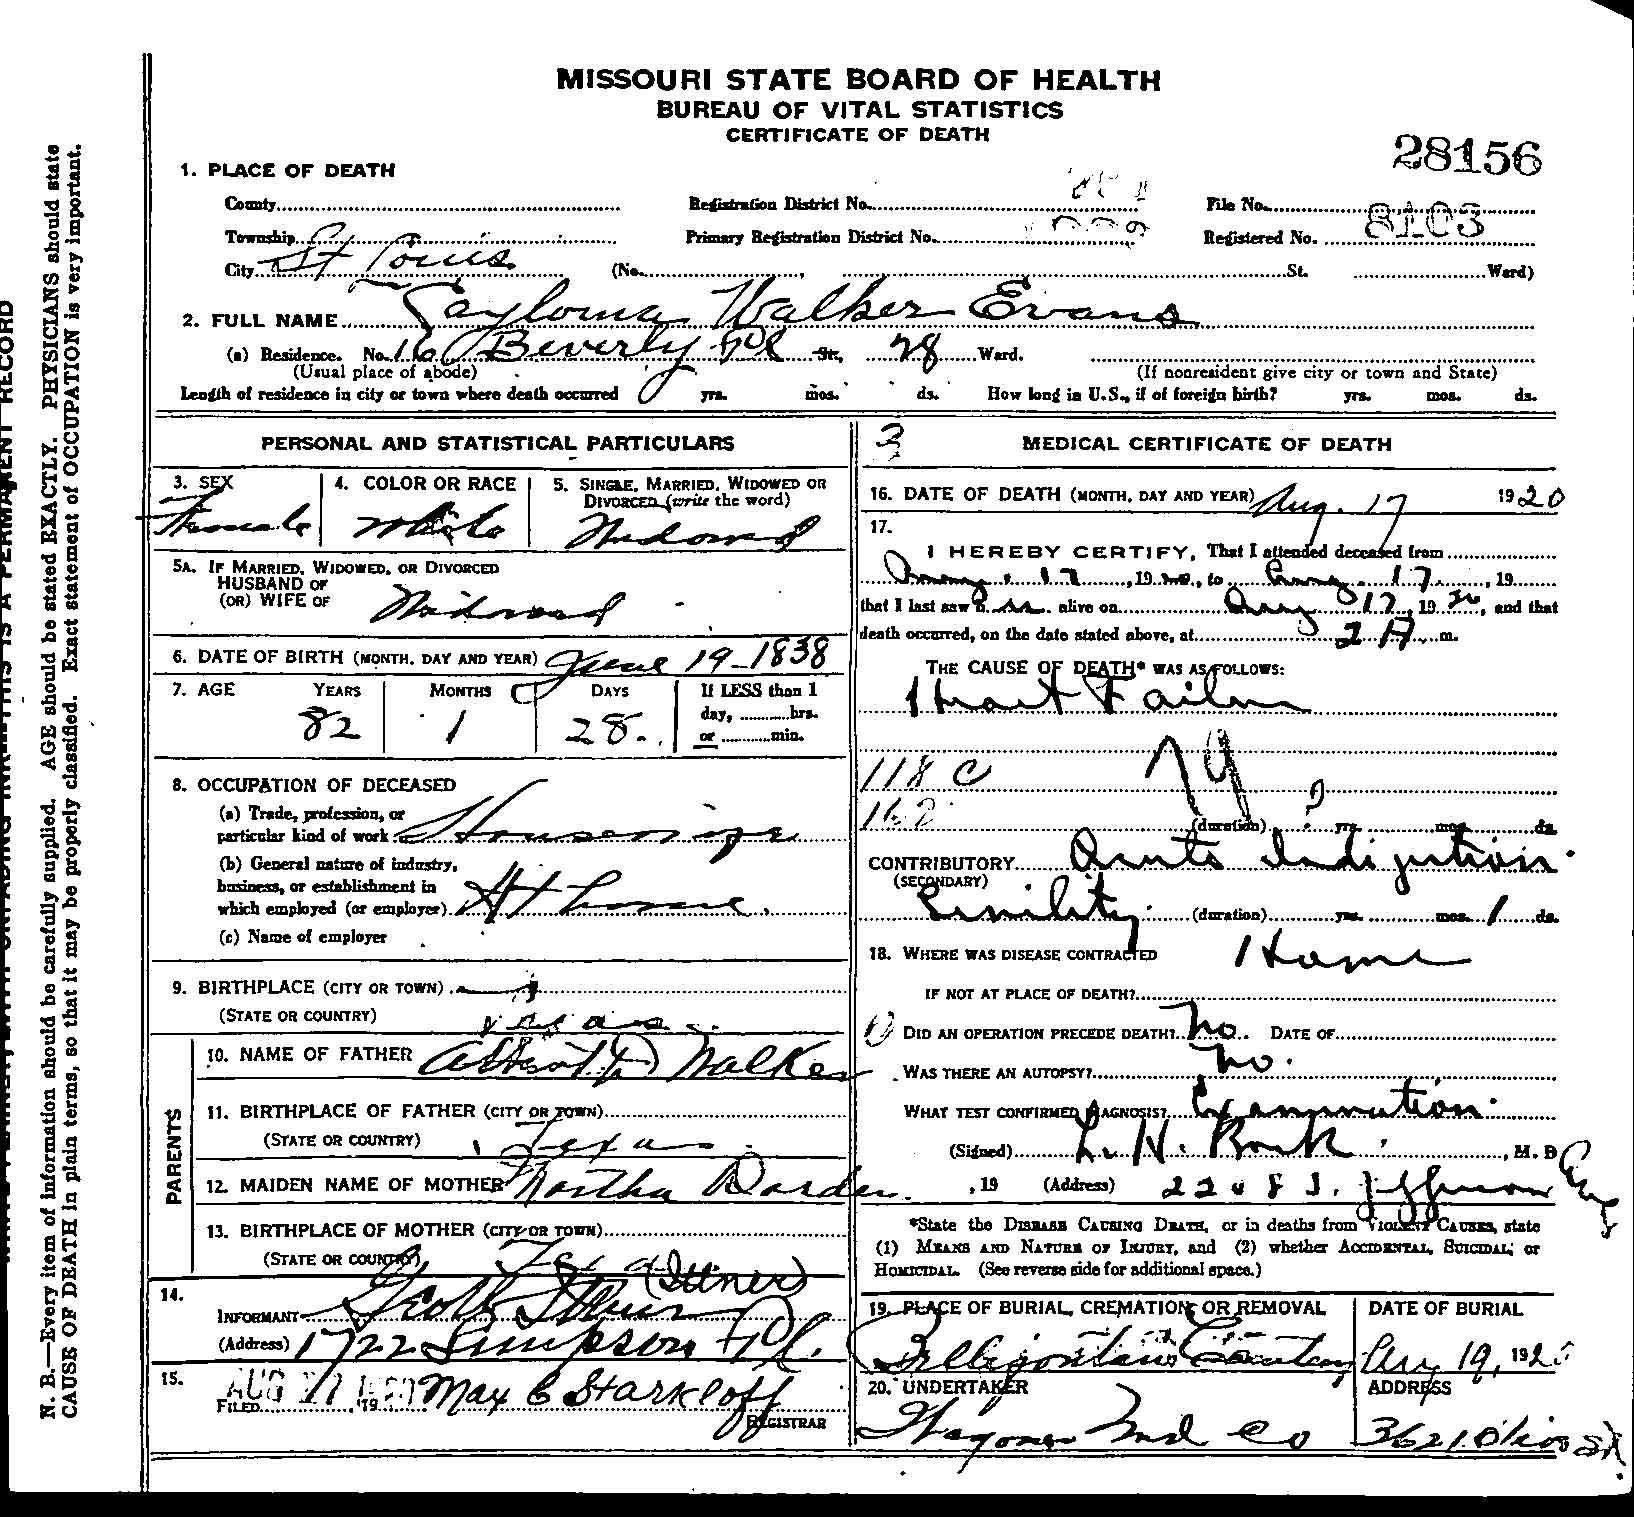 MISSOURI STATE BOARD OF HEALTH
BUREAU OF VITAL STATISTICS
CERTIFICATE OF DEATH
28156
1. PLACE OF DEATH
County
Registration District No.
File No.
Township
Primary Registration District No.
Registered No. 8103
City St Louis (No. , St. Ward)
2. FULL NAME Walker Evans
(a) Residence. No. 16 Beverly Pl St., 28 Ward.
(Usual place of abode) (If nonresident give city or town and State)
Length of residence in city or town where death occurred yrs. mos. ds. How long in U.S., if of foreign birth? yrs. mos. ds.
PERSONAL AND STATISTICAL PARTICULARS
3. SEX
Female
4. COLOR OR RACE
White
5. SINGLE, MARRIED, WIDOWED OR
DIVORCED (write the word)
Widowed
5A. IF MARRIED, WIDOWED, OR DIVORCED
HUSBAND OF
(OR) WIFE OF Widowed
6. DATE OF BIRTH (MONTH, DAY AND YEAR) June 19-1838
7. AGE YEARS MONTHS DAYS If LESS than 1
day, hrs.
or min.
82 1 28
8. OCCUPATION OF DECEASED
(a) Trade, profession, or
particular kind of work Housewife
(b) General nature of industry,
business, or establishment in
which employed (or employer) At home
(c) Name of employer
9. BIRTHPLACE (CITY OR TOWN)
(STATE OR COUNTRY) Texas
PARENTS
10. NAME OF FATHER Walker
11. BIRTHPLACE OF FATHER (CITY OR TOWN)
(STATE OR COUNTRY) Texas
12. MAIDEN NAME OF MOTHER Martha Darden
13. BIRTHPLACE OF MOTHER (CITY OR TOWN)
(STATE OR COUNTRY)
14.
INFORMANT Scott Ittner (Ittner)
(Address) 1722 Simpson Pl.
15.
FILED AUG 19 Max C Starkloff
REGISTRAR
3
MEDICAL CERTIFICATE OF DEATH
16. DATE OF DEATH (MONTH, DAY AND YEAR) Aug. 17 1920
17.
I HEREBY CERTIFY, That I attended deceased from
Aug. 17, 1920, to Aug. 17, 19
that I last saw her alive on Aug 17, 1920, and that
death occurred, on the date stated above, at 2 A m.
THE CAUSE OF DEATH* WAS AS FOLLOWS:
Heart Failure
118 C
162
(duration) yrs. mos. ds.
CONTRIBUTORY Acute Indigestion
(SECONDARY)
Senility (duration) yrs. mos. 1 ds.
18. WHERE WAS DISEASE CONTRACTED Home
IF NOT AT PLACE OF DEATH?
DID AN OPERATION PRECEDE DEATH? No. DATE OF
WAS THERE AN AUTOPSY? No.
WHAT TEST CONFIRMED DIAGNOSIS? Examination
(Signed) L. H. , M. D
, 19 (Address) Jefferson Ave
*State the DISEASE CAUSING DEATH, or in deaths from VIOLENT CAUSES, state
(1) MEANS AND NATURE OF INJURY, and (2) whether ACCIDENTAL, SUICIDAL, or
HOMICIDAL. (See reverse side for additional space.)
19. PLACE OF BURIAL, CREMATION OR REMOVAL
Bellefontaine Cemetery
DATE OF BURIAL
Aug 19, 1920
20. UNDERTAKER
Wagoner Und Co
ADDRESS
3621 Olive St.
N. B.—Every item of information should be carefully supplied. AGE should be stated EXACTLY. PHYSICIANS should state
CAUSE OF DEATH in plain terms, so that it may be properly classified. Exact statement of OCCUPATION is very important.